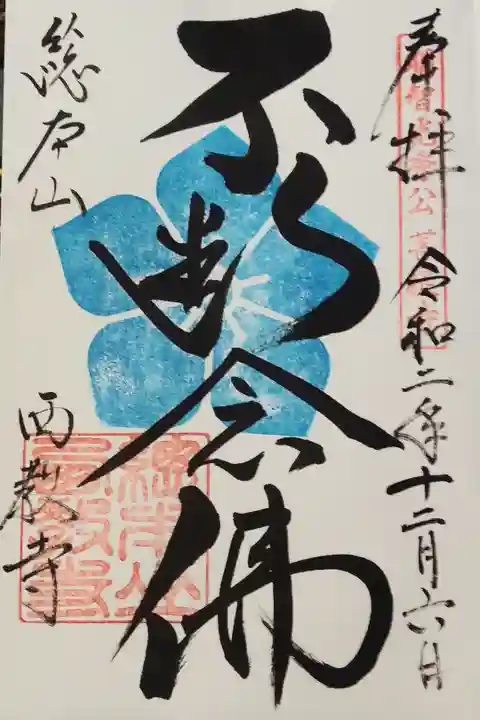 奉拝 令和二年十二月六日
不断念佛
総本山 西教寺